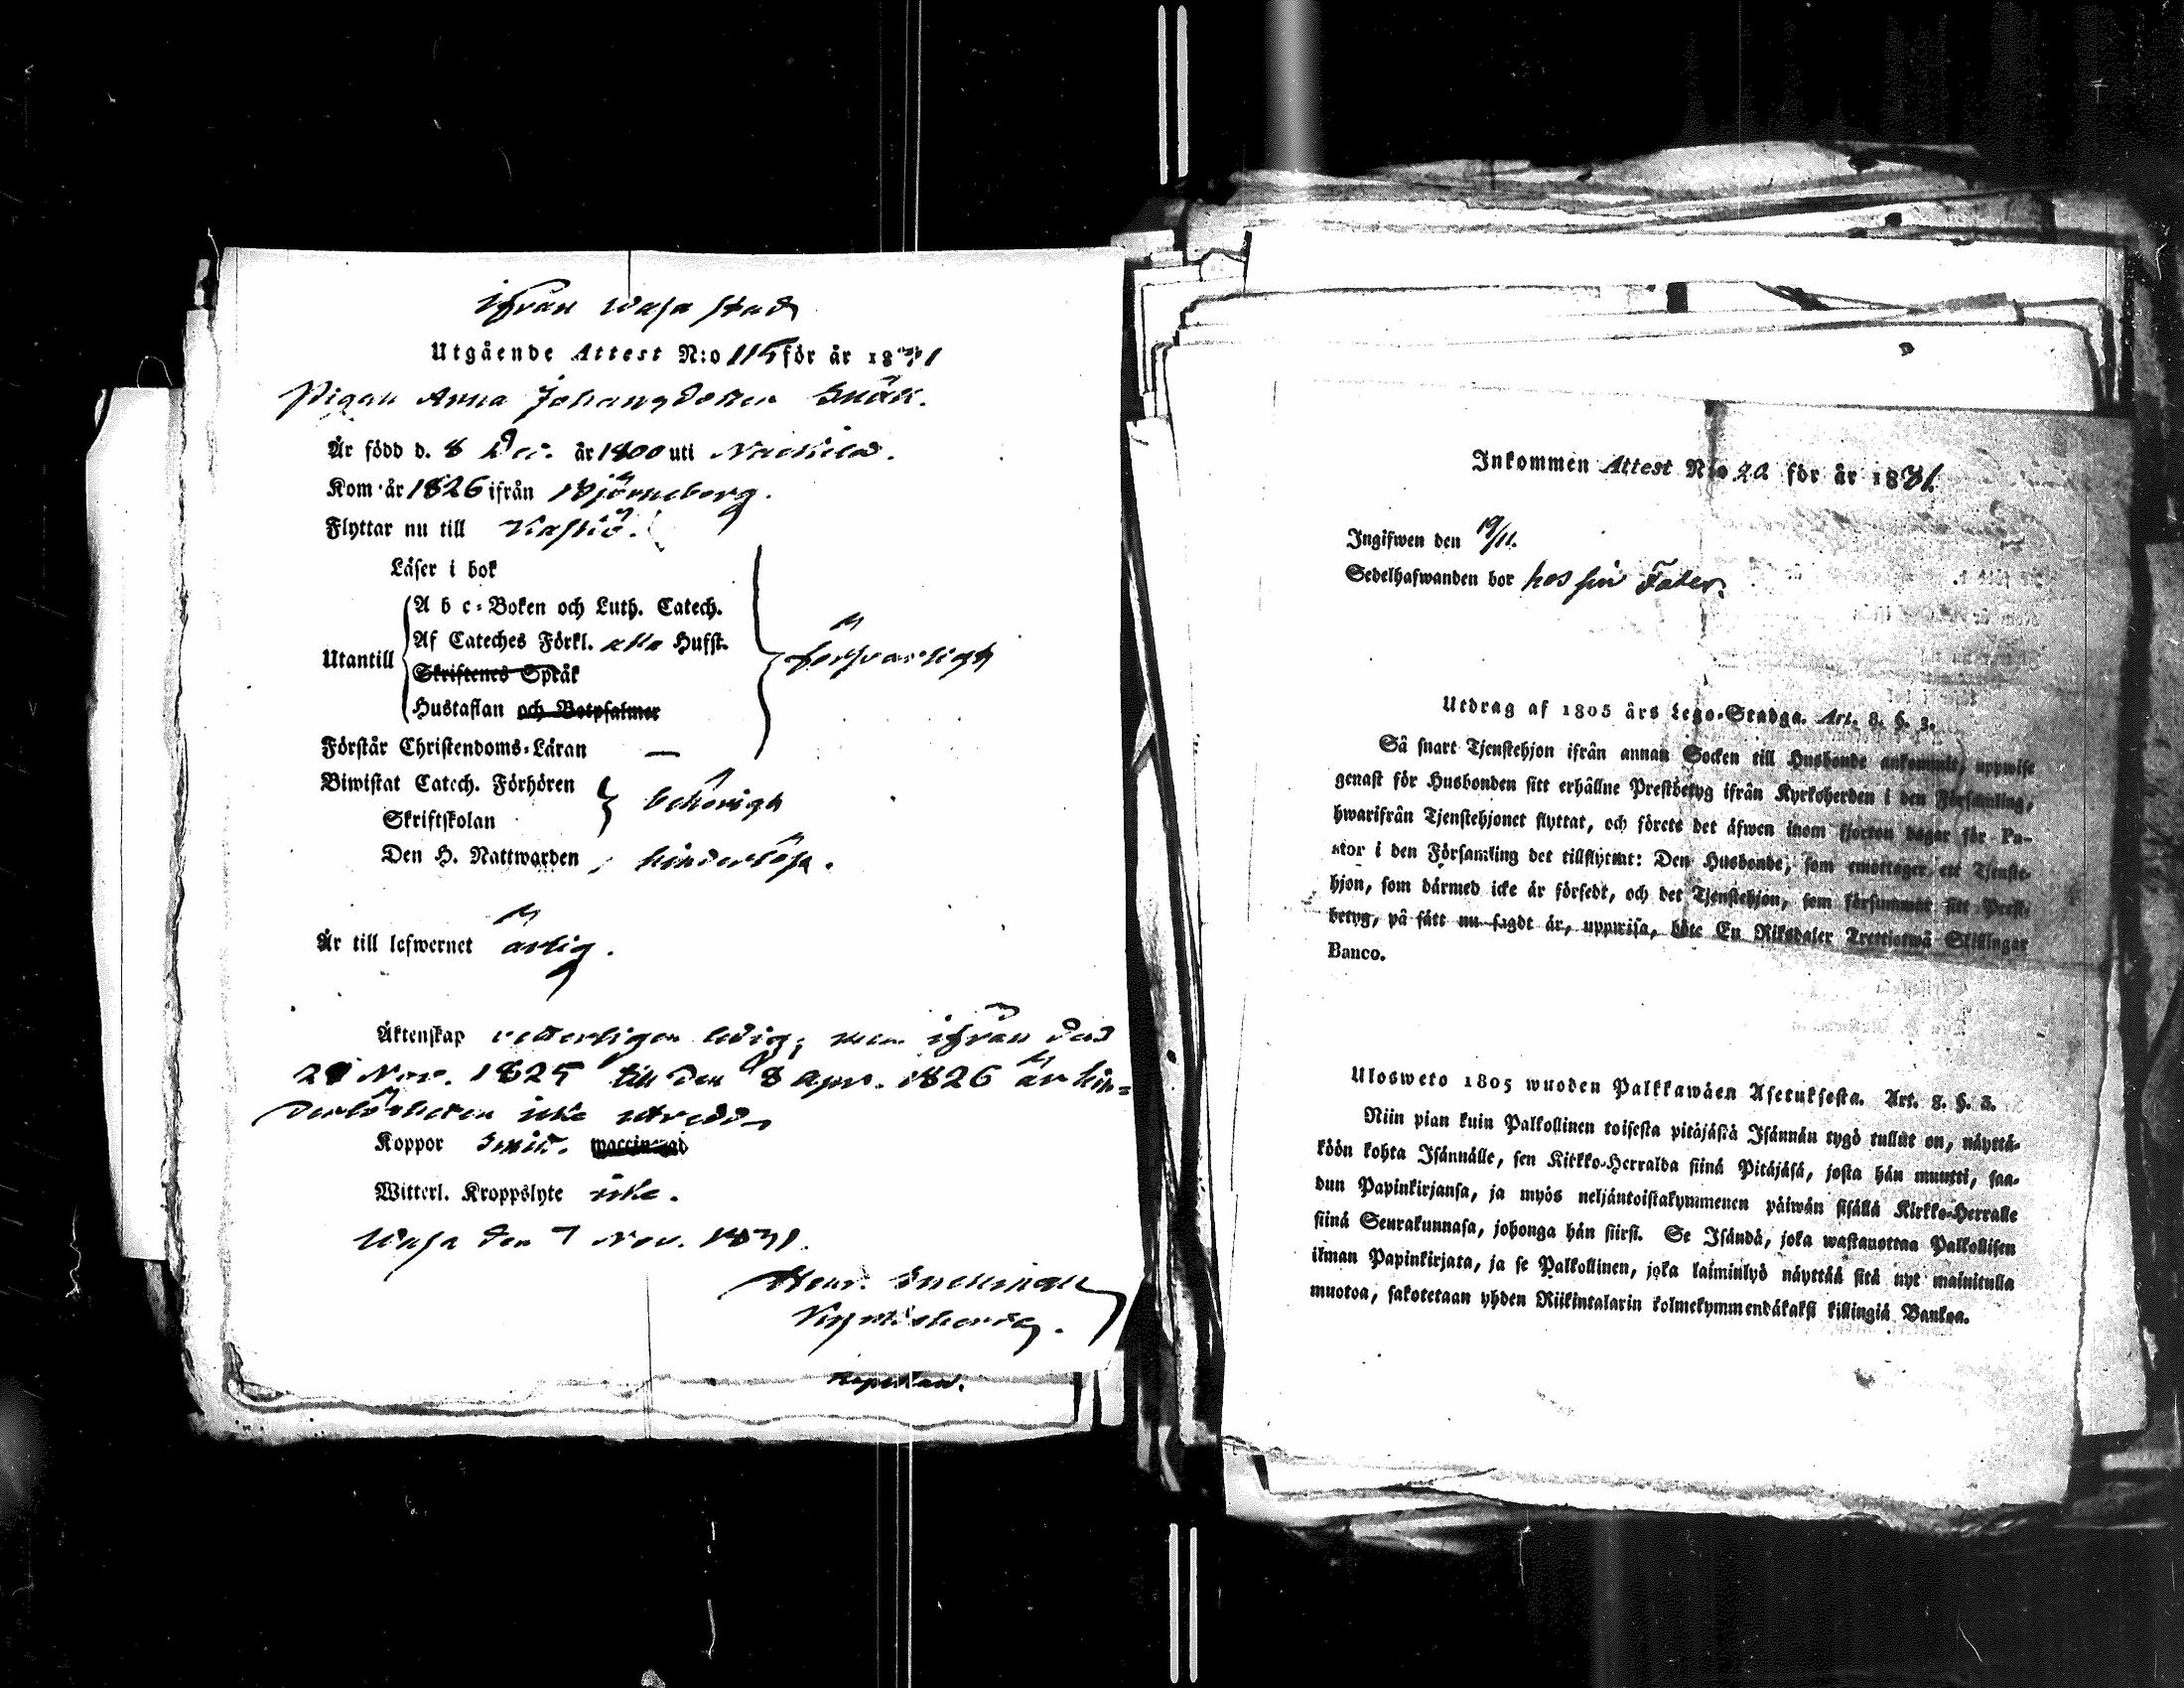 ifrån Wasa stad
Utgående Attest N:o 115 för år 1831
Pigan Anna Johansdotter Snäll.
Är född d. 8 Dec. år 1800 uti
Kom år 1826 ifrån Björneborg.
Flyttar nu till Kaskö.
Läser i bok
Utantill
A b c-Boken och Luth. Catech.
Af Cateches Förkl. alla Hufst.
Skriftenes Språk
Hustaflan och Botpsalmer
försvarligt
Förstår Christendoms-Läran —
Biwistat Catech. Förhören
Skriftskolan
behörigt
Den H. Nattwarden hinderlöst.
Är till lefwernet ärlig.
Äktenskap veterligen ledig; men ifrån den
29 Nov. 1825 till den 8 Apr. 1826 är hin-
derlösheten icke utredd
Koppor haft. vaccinerad
Witterl. Kroppslyte icke.
Wasa den 7 Nov. 1831.
Henr. Snellman
Kapellan.
Inkommen Attest N:o 20 för år 1831.
Ingifwen den 19/11.
Sedelhafwanden bor hos sin Fader.
Utdrag af 1805 års Lego-Stadga. Art. 8. §. 3.
Så snart Tjenstehjon ifrån annan Socken till Husbonde ankommit, uppwise
genast för Husbonden sitt erhållne Prestbetyg ifrån Kyrkoherden i den Församling,
hwarifrån Tjenstehjonet flyttat, och förete det äfwen inom fjorton dagar för Pa-
stor i den Församling det tillflyttat: Den Husbonde, som emottager ett Tjenste-
hjon, som därmed icke är försedt, och det Tjenstehjon, som försummat sitt Prest-
betyg, på sätt nu sagdt är, uppwisa, böte En Riksdaler Trettiotwå Skillingar
Banco.
Ulosweto 1805 wuoden Palkkawäen Asetuksesta. Art. 8. §. 3.
Niin pian kuin Palkollinen toisesta pitäjästä Isännän tygö tullut on, näyttä-
köön kohta Isännälle, sen Kirkko-Herralda siinä Pitäjäsä, josta hän muutti, saa-
dun Papinkirjansa, ja myös neljäntoistakymmenen päiwän sisällä Kirkko-Herralle
siinä Seurakunnasa, johonga hän siirsi. Se Isändä, joka wastanottaa Palkollisen
ilman Papinkirjata, ja se Palkollinen, joka laiminlyö näyttää sitä nyt mainitulla
muotoa, sakotetaan yhden Riikintalarin kolmekymmendäkaksi killingiä Bankoa.